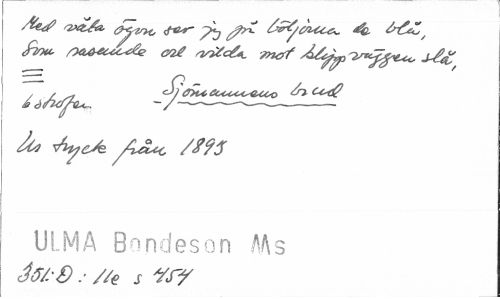 Med våta ögon ser jag på böljorna de blå,
Som rasande och vilda mot klippväggen slå,
6 strofer. Sjömannens brud
Ur tryck från 1893
ULMA Bondeson Ms
351:D: 11e s 454